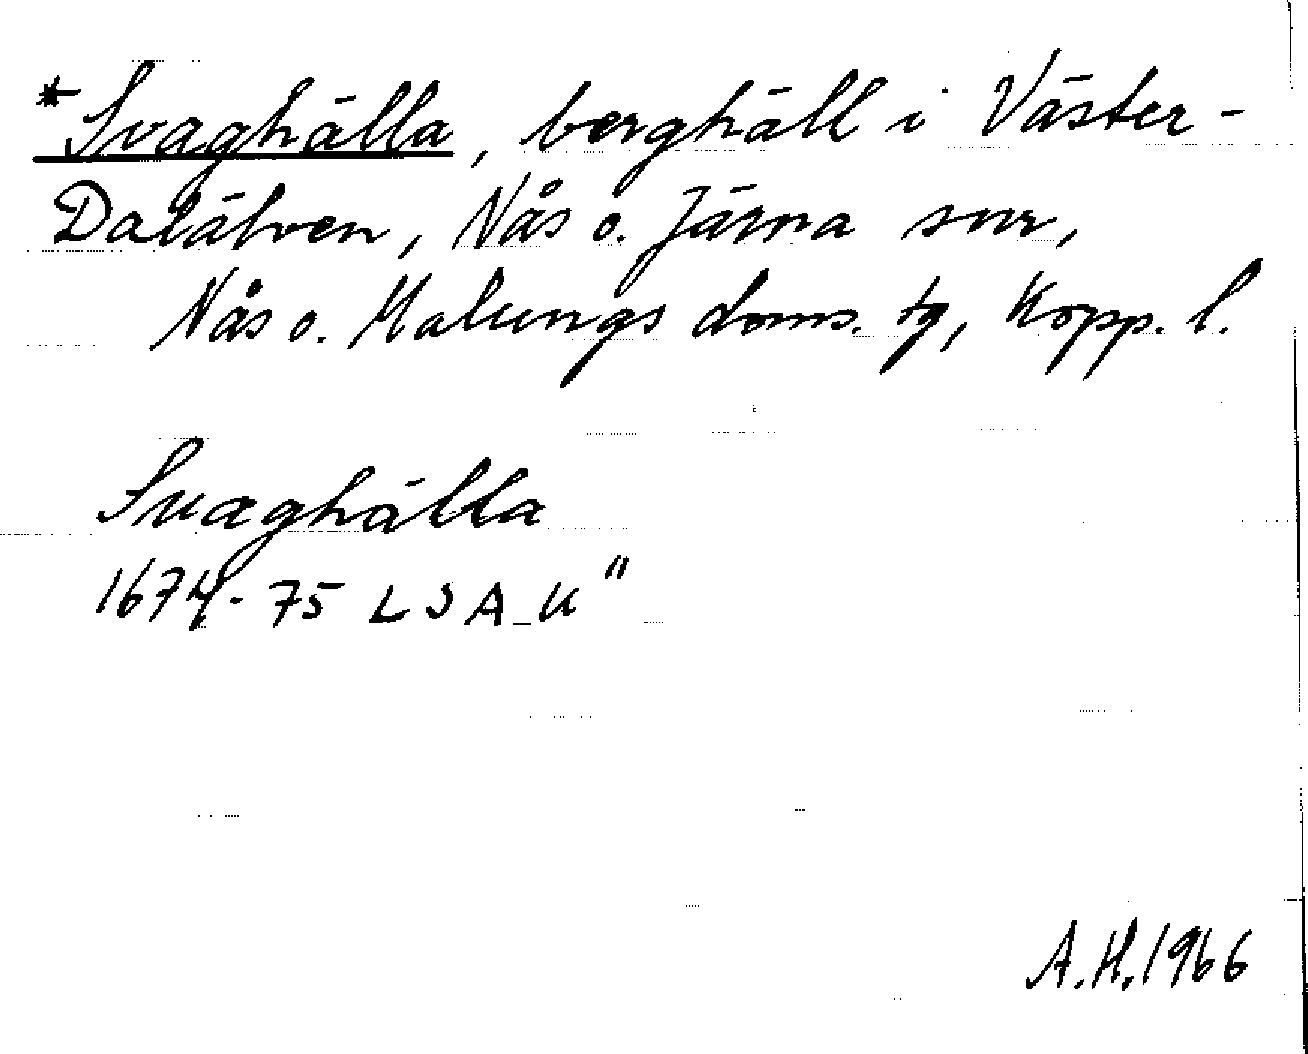 *Svaghälla, berghäll i Väster-
Dalälven, Nås o. Järna snr,
Nås o. Malungs doms. tg, Kopp. l.
Svaghälla
1674-75 LSA K"
A.H. 1966